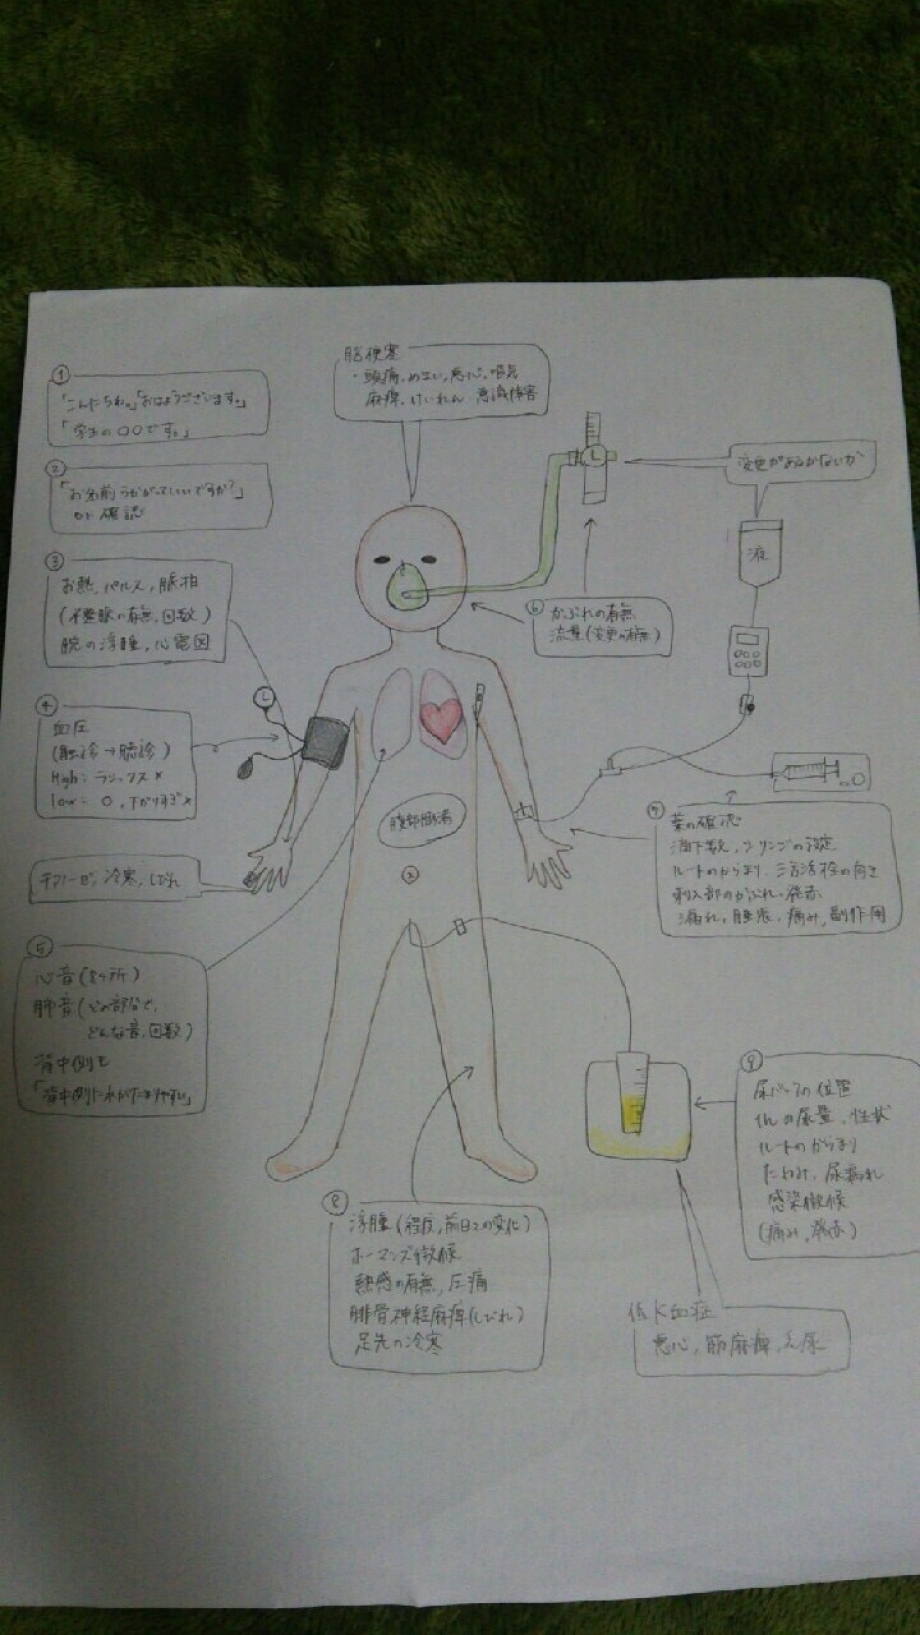 ①
「こんにちわ。」「おはようございます。」
「学生の〇〇です。」
②
「お名前うかがっていいですか?」
or 確認
③
お熱、パルス、脈拍
(不整脈の有無、回数)
腕の浮腫、心電図
④
血圧
(触診→聴診)
High: ラシックス×
low= 0、下がりすぎ×
チアノーゼ、冷寒、しびれ
⑤
心音(5ヶ所)
肺音(どの部分で、
どんな音、回数)
背中側も
脳梗塞
・頭痛、めまい、悪心、嘔気
麻痺、けいれん 意識障害
変更があるかないか
液
⑥ かぶれの有無
流量(変更の有無)
腹部膨満
⑦
薬の確認
滴下数、シリンジの設定
ルートのからまり、三方活栓の向き
刺入部のかぶれ、発赤
漏れ、腫脹、痛み、副作用
⑧
浮腫(程度、前日との変化)
ホーマンズ徴候
熱感の有無、圧痛
腓骨神経麻痺(しびれ)
足先の冷寒
⑨
尿バックの位置
1hの尿量、性状
ルートのからまり
たわみ、尿漏れ
感染徴候
(痛み、発赤)
低K血症
悪心、筋麻痺、乏尿